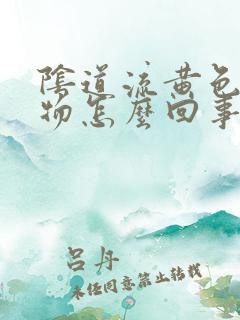 陰道流黄色
物怎麼回事
吕丹
未经同意禁止转载